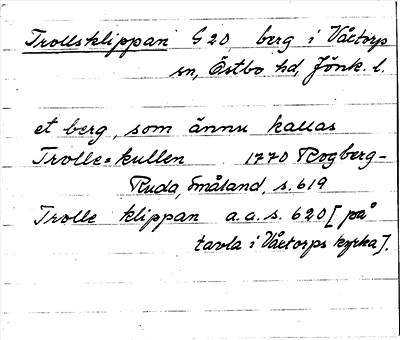 Trollsklippan G20, berg i Våctorp
sn, Östbo hd, Jönk. l.
et berg, som ännu kallas
Trolle=kullen 1770 Rogberg-
Ruda, Småland, s. 619
Trolle klippan a.a.s. 620 [på
tavla i Våctorps kyrka].